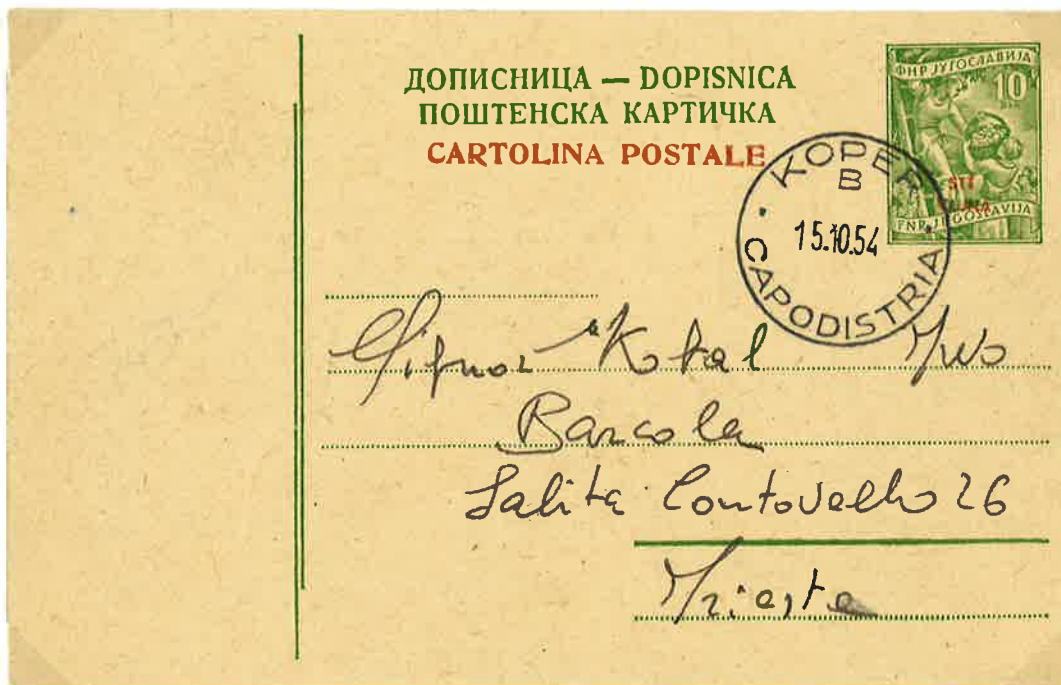 ДОПИСНИЦА — DOPISNICA
ПОШТЕНСКА КАРТИЧКА
CARTOLINA POSTALE
ФНР ЈУГОСЛАВИЈА
10
STT
FNR JUGOSLAVIJA
KOPER
B
15.10.54
CAPODISTRIA
Signor Kokal Ivo
Barcola
Salita Contovello 26
Trieste